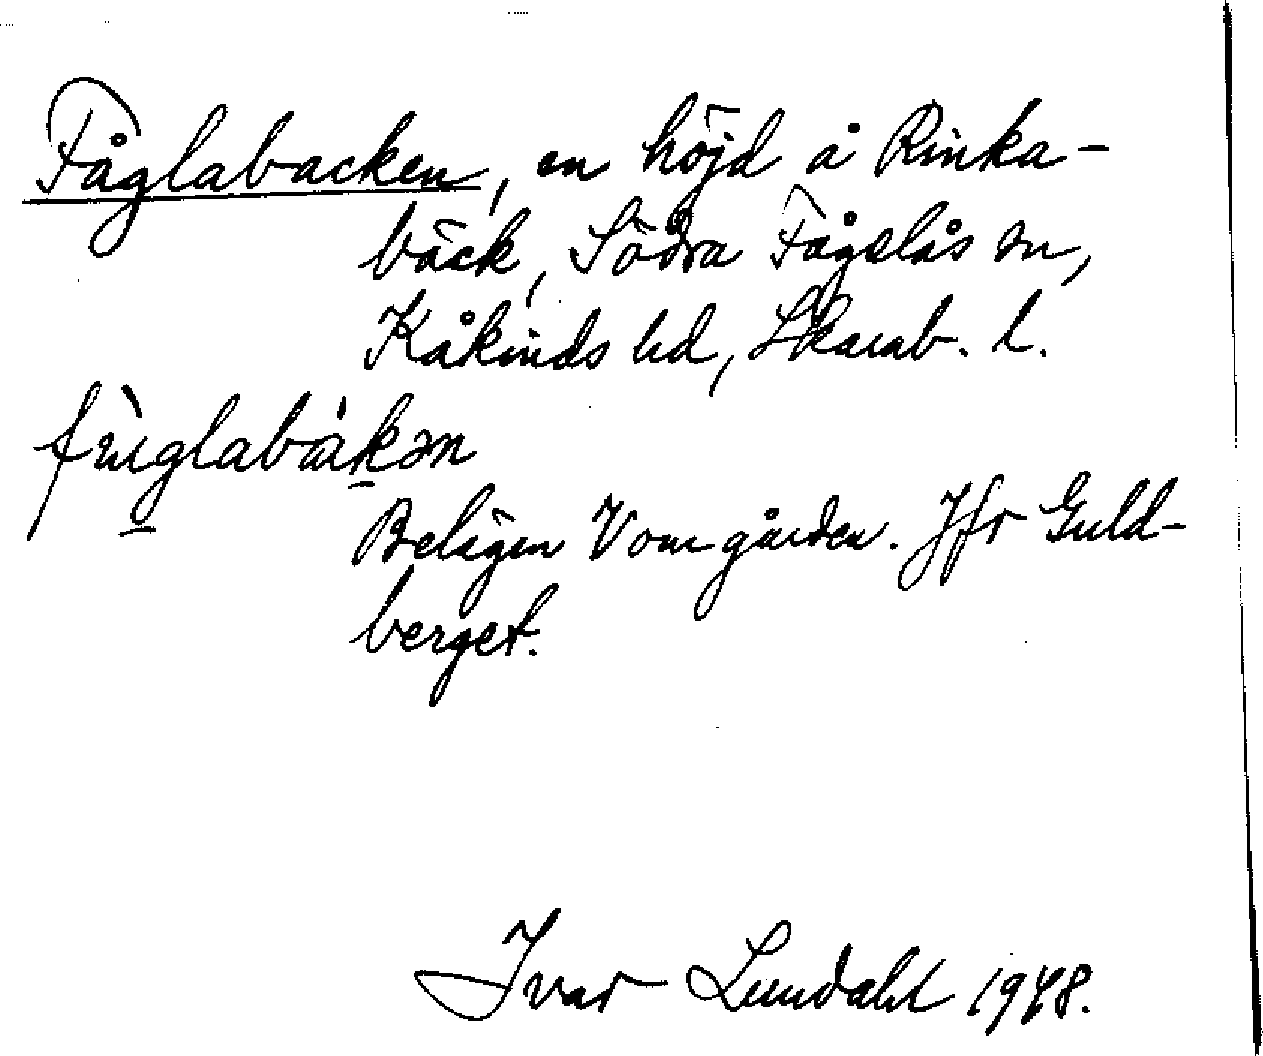 Fåglabacken, en höjd å Rinka-
bäck, Södra Fågelås sn,
Kåkinds hd, Skarab. l.
fùglabàkən
Belägen V om gården. Jfr Guld-
berget.
Ivar Lundahl 1948.